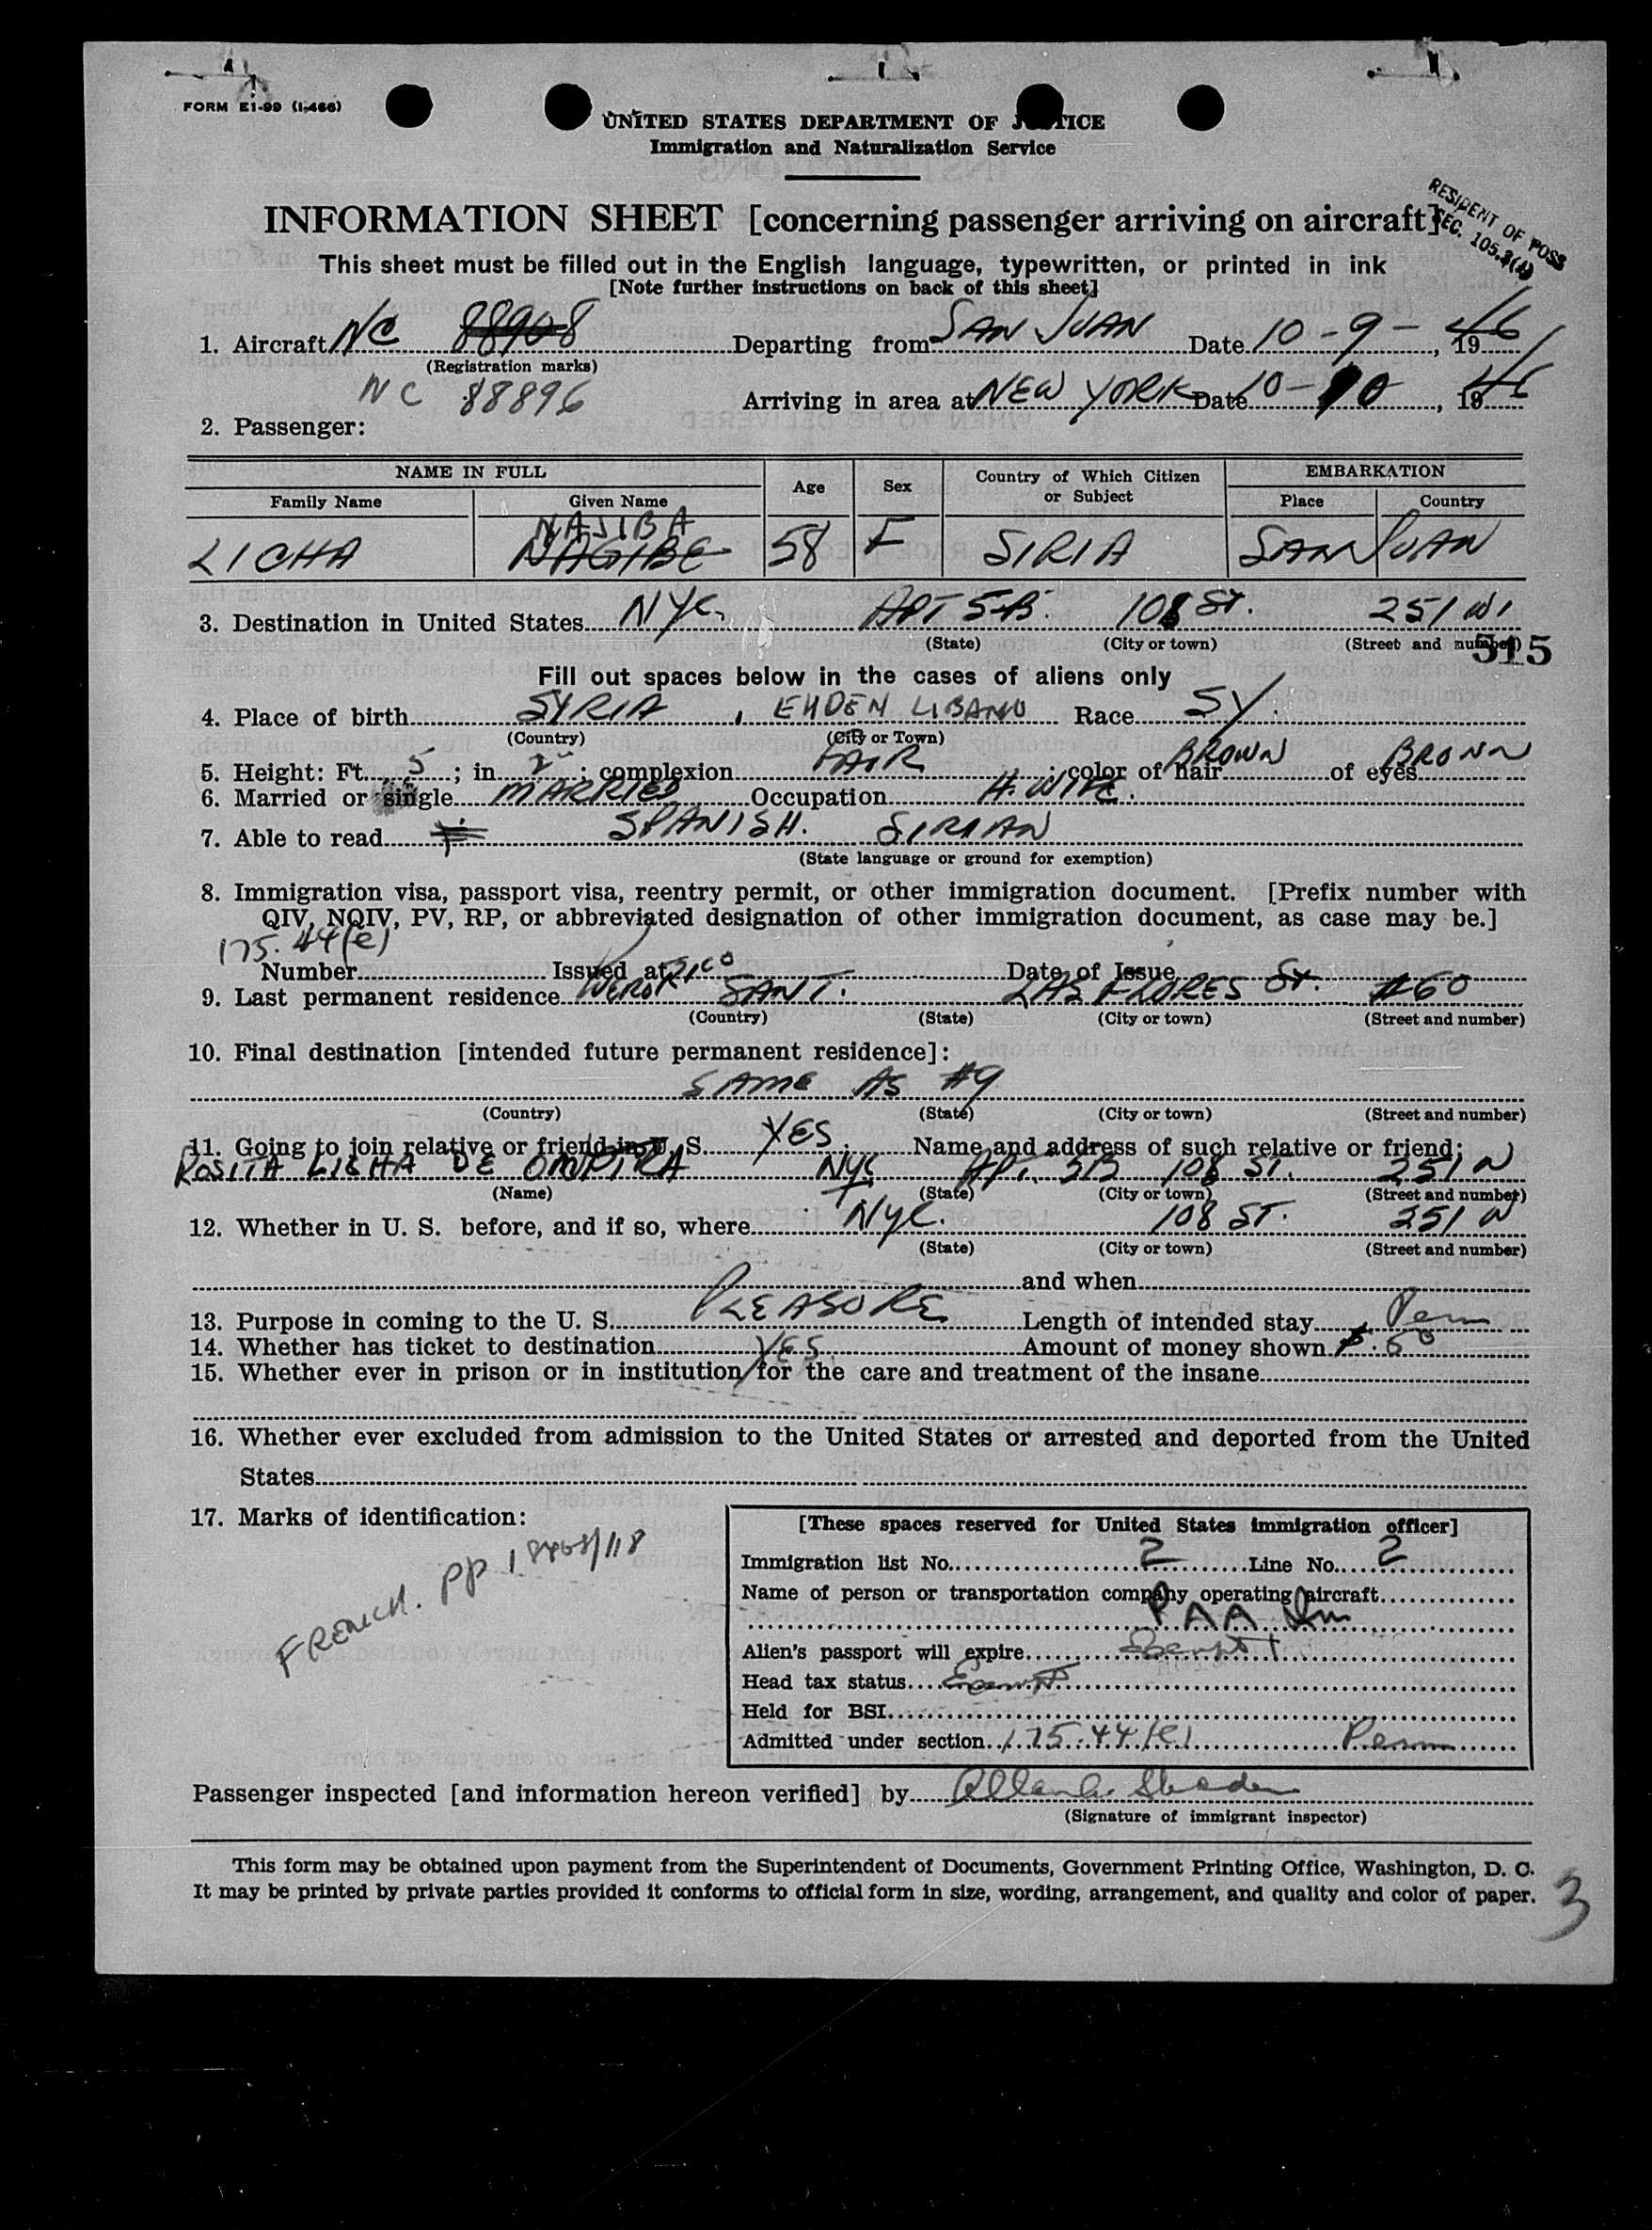 FORM E1-99 (I-466)
UNITED STATES DEPARTMENT OF JUSTICE
Immigration and Naturalization Service
INFORMATION SHEET [concerning passenger arriving on aircraft]
RESIDENT OF POSS
SEC. 105.3(4)
This sheet must be filled out in the English language, typewritten, or printed in ink
[Note further instructions on back of this sheet]
1. Aircraft NC 88908 Departing from SAN JUAN Date 10-9-, 1946
(Registration marks)
NC 88896 Arriving in area at NEW YORK Date 10-10, 1946
2. Passenger:
NAME IN FULL Age Sex Country of Which Citizen or Subject EMBARKATION
Family Name Given Name Place Country
NAJIBA
LICHA NAGIBE 58 F SIRIA SAN JUAN
3. Destination in United States NYC. APT 5-B. 108 ST. 251 W.
(State) (City or town) (Street and number)
515
Fill out spaces below in the cases of aliens only
4. Place of birth SYRIA, EHDEN LIBANO Race SY.
(Country) (City or Town)
5. Height: Ft. 5; in 2; complexion FAIR; color of hair BROWN of eyes BROWN
6. Married or single MARRIED Occupation H. WIFE.
7. Able to read SPANISH. SIRIAN
(State language or ground for exemption)
8. Immigration visa, passport visa, reentry permit, or other immigration document. [Prefix number with
QIV, NQIV, PV, RP, or abbreviated designation of other immigration document, as case may be.]
175.44(e)
Number Issued at Date of Issue
9. Last permanent residence PUERTO RICO SANT. LAS FLORES St. #60
(Country) (State) (City or town) (Street and number)
10. Final destination [intended future permanent residence]:
SAME AS #9
(Country) (State) (City or town) (Street and number)
11. Going to join relative or friend in U. S. YES. Name and address of such relative or friend:
ROSITA LICHA DE NYC APT. 5B 108 ST. 251 W
(Name) (State) (City or town) (Street and number)
12. Whether in U. S. before, and if so, where NYC. 108 ST. 251 W
(State) (City or town) (Street and number)
and when
13. Purpose in coming to the U. S. PLEASURE Length of intended stay Perm
14. Whether has ticket to destination YES. Amount of money shown $.50
15. Whether ever in prison or in institution for the care and treatment of the insane
16. Whether ever excluded from admission to the United States or arrested and deported from the United
States
17. Marks of identification:
FRENCH. PP
[These spaces reserved for United States immigration officer]
Immigration list No. 2 Line No. 2
Name of person or transportation company operating aircraft
PAA
Alien's passport will expire Exempt
Head tax status Exempt
Held for BSI
Admitted under section 175.44(e) Perm
Passenger inspected [and information hereon verified] by
(Signature of immigrant inspector)
This form may be obtained upon payment from the Superintendent of Documents, Government Printing Office, Washington, D. C.
It may be printed by private parties provided it conforms to official form in size, wording, arrangement, and quality and color of paper.
3